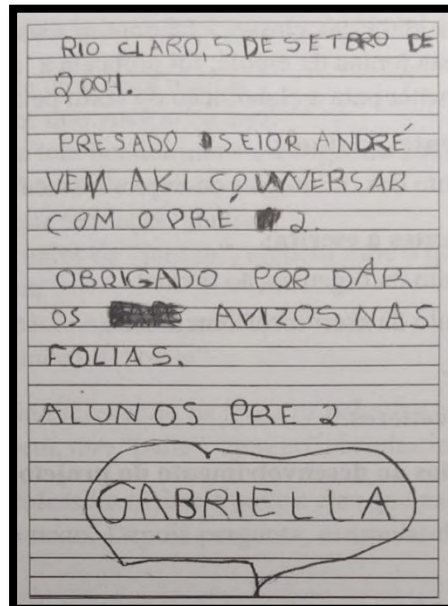 RIO CLARO, 5 DE SETBRO DE
2001.
PRESADO SEIOR ANDRÉ
VEM AKI CONVERSAR
COM O PRÉ 2.
OBRIGADO POR DAR
OS AVIZOS NAS
FOLIAS.
ALUNOS PRE 2
GABRIELLA